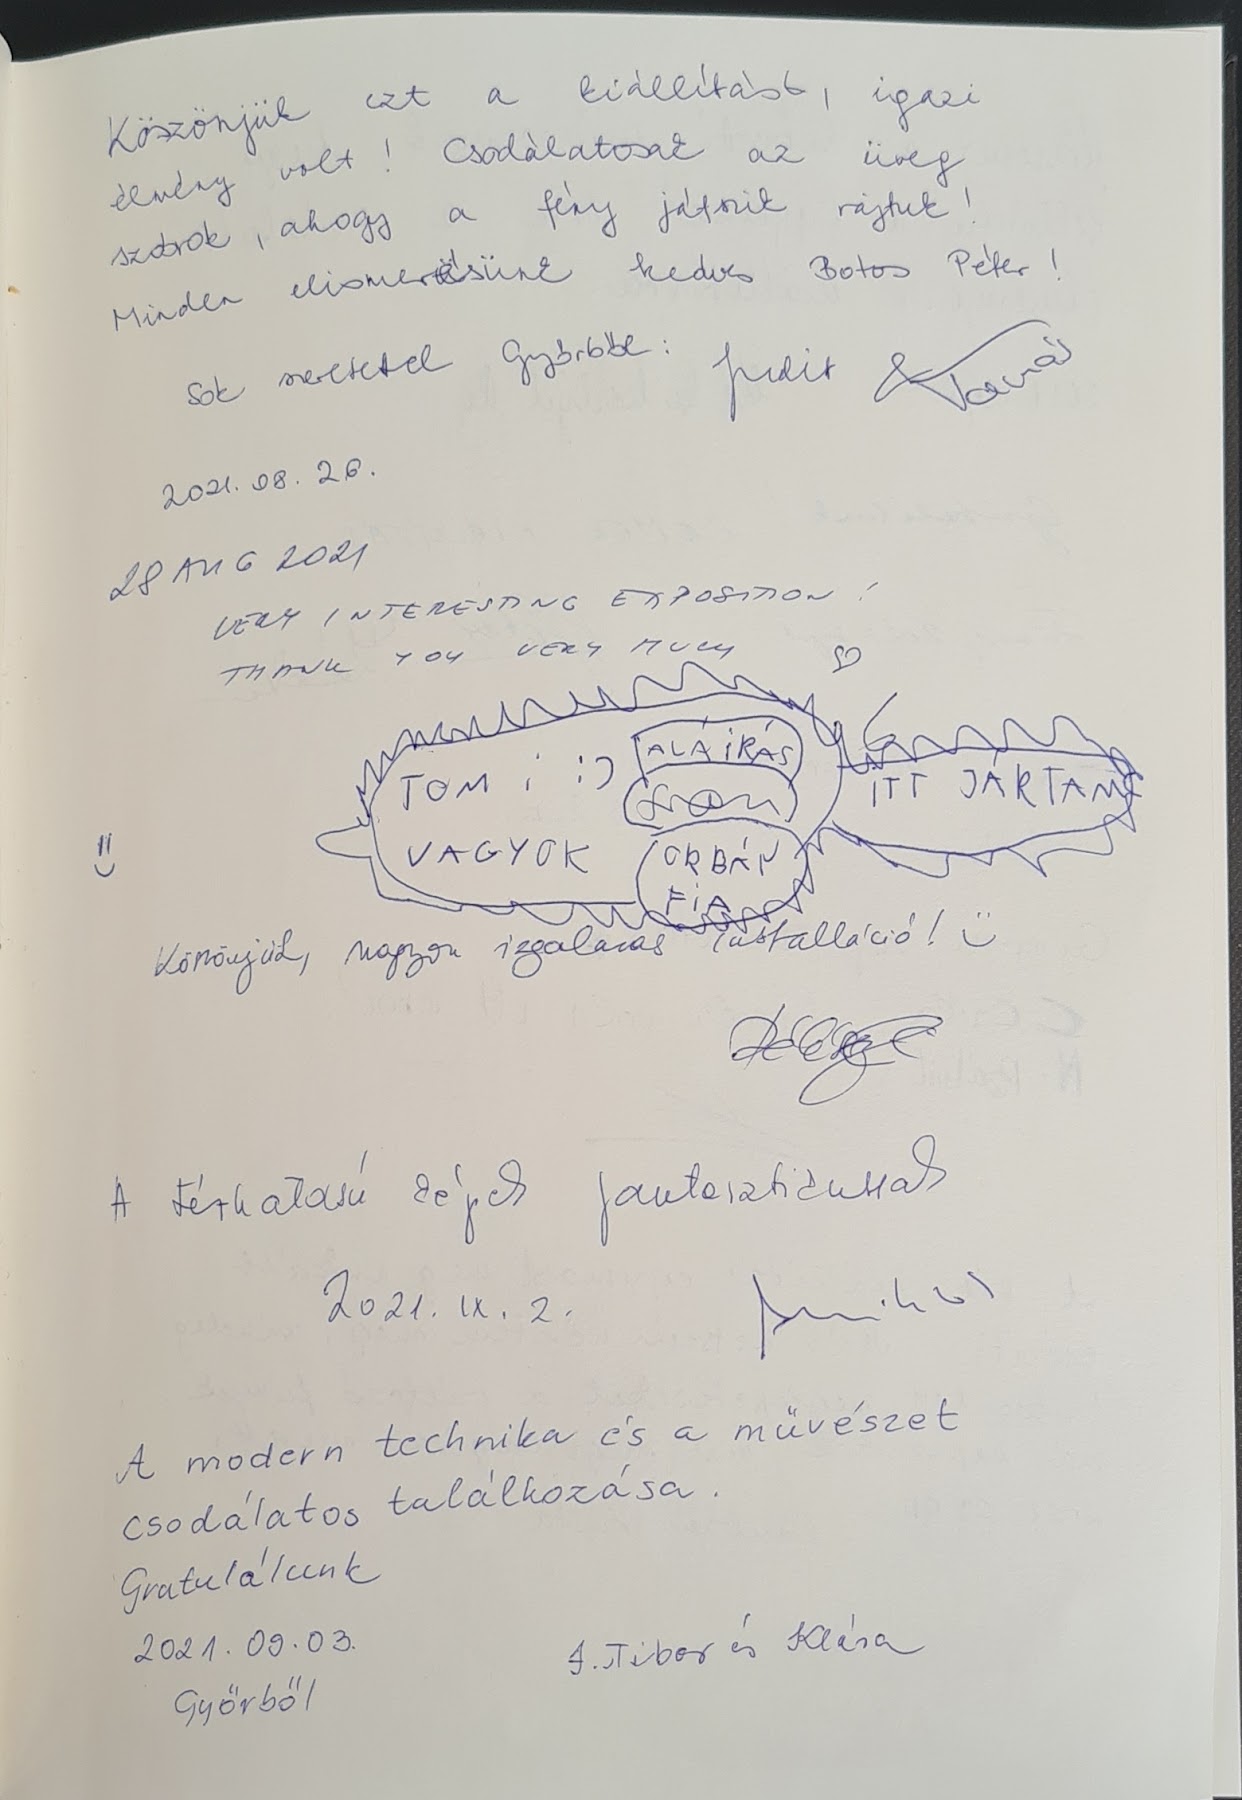 Köszönjük ezt a kiállítást, igazi
élmény volt! Csodálatosak az üveg
szobrok, ahogy a fény játszik rajtuk!
Minden elismerésünk kedves Botos Péter!
Sok szeretettel Győrből: Judit & Tamás
2021. 08. 26.
28 AUG 2021
VERY INTERESTING EXPOSITION!
THANK YOU VERY MUCH
TOMI :)
VAGYOK
ALÁÍRÁS
ORBÁN
FIA
ITT JÁRTAM
Köszönjük, nagyon izgalmas installáció! :)
A térhatású képek fantasztikusak
2021. IX. 2.
A modern technika és a művészet
csodálatos találkozása.
Gratulálunk
2021. 09. 03.
Győrből
J. Tibor és Klára